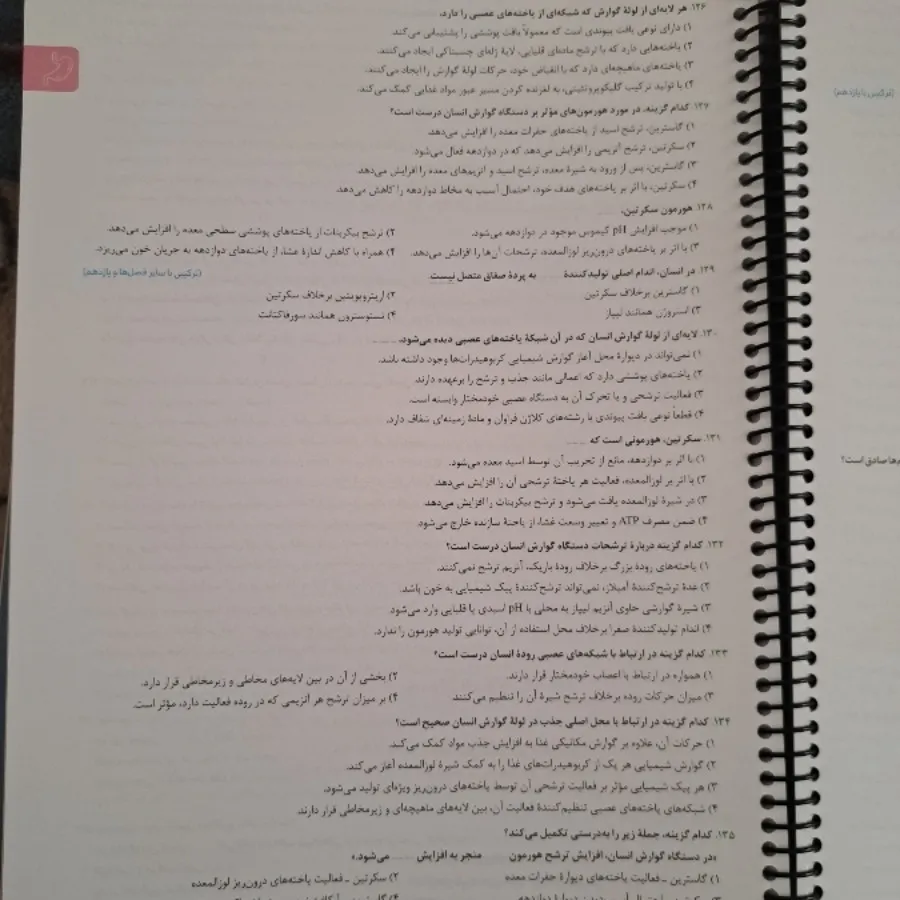 ۱۲۶. هر لایه‌ای از لولهٔ گوارش که شبکه‌ای از یاخته‌های عصبی را دارد،
۱) دارای نوعی بافت پیوندی است که معمولاً بافت پوششی را پشتیبانی می‌کند.
۲) یاخته‌هایی دارد که با ترشح ماده‌ای قلیایی، لایهٔ ژله‌ای چسبناکی ایجاد می‌کنند.
۳) یاخته‌های ماهیچه‌ای دارد که با انقباض خود، حرکات لولهٔ گوارش را ایجاد می‌کنند.
۴) با تولید ترکیب گلیکوپروتئینی، به لغزنده کردن مسیر عبور مواد غذایی کمک می‌کند.
۱۲۷. کدام گزینه، در مورد هورمون‌های مؤثر بر دستگاه گوارش انسان درست است؟
۱) گاسترین، ترشح اسید از یاخته‌های حفرات معده را افزایش می‌دهد.
۲) سکرتین، ترشح آنزیمی را افزایش می‌دهد که در دوازدهه فعال می‌شود.
۳) گاسترین، پس از ورود به شیرهٔ معده، ترشح اسید و آنزیم‌های معده را افزایش می‌دهد.
۴) سکرتین، با اثر بر یاخته‌های هدف خود، احتمال آسیب به مخاط دوازدهه را کاهش می‌دهد.
۱۲۸. هورمون سکرتین، ......
۱) موجب افزایش pH کیموس موجود در دوازدهه می‌شود. ۲) ترشح بیکربنات از یاخته‌های پوششی سطحی معده را افزایش می‌دهد.
۳) با اثر بر یاخته‌های درون‌ریز لوزالمعده، ترشحات آن‌ها را افزایش می‌دهد. ۴) همراه با کاهش اندازهٔ غشا، از یاخته‌های دوازدهه به جریان خون می‌ریزد.
۱۲۹. در انسان، اندام اصلی تولیدکنندهٔ ...... به پردهٔ صفاق متصل نیست. (ترکیبی با سایر فصل‌ها و یازدهم)
۱) گاسترین برخلاف سکرتین ۲) اریتروپویتین برخلاف سکرتین
۳) استروژن همانند لیپاز ۴) تستوسترون همانند سورفاکتانت
۱۳۰. لایه‌ای از لولهٔ گوارش انسان که در آن شبکهٔ یاخته‌های عصبی دیده می‌شود، ......
۱) نمی‌تواند در دیوارهٔ محل آغاز گوارش شیمیایی کربوهیدرات‌ها وجود داشته باشد.
۲) یاخته‌های پوششی دارد که اعمالی مانند جذب و ترشح را برعهده دارند.
۳) فعالیت ترشحی و یا تحرک آن به دستگاه عصبی خودمختار وابسته است.
۴) قطعاً نوعی بافت پیوندی با رشته‌های کلاژن فراوان و مادهٔ زمینه‌ای شفاف دارد.
۱۳۱. سکرتین، هورمونی است که ......
۱) با اثر بر دوازدهه، مانع از تخریب آن توسط اسید معده می‌شود.
۲) با اثر بر لوزالمعده، فعالیت هر یاختهٔ ترشحی آن را افزایش می‌دهد.
۳) در شیرهٔ لوزالمعده یافت می‌شود و ترشح بیکربنات را افزایش می‌دهد.
۴) ضمن مصرف ATP و تغییر وسعت غشا، از یاختهٔ سازنده خارج می‌شود.
۱۳۲. کدام گزینه دربارهٔ ترشحات دستگاه گوارش انسان درست است؟
۱) یاخته‌های رودهٔ بزرگ برخلاف رودهٔ باریک، آنزیم ترشح نمی‌کنند.
۲) غدهٔ ترشح‌کنندهٔ آمیلاز، نمی‌تواند ترشح‌کنندهٔ پیک شیمیایی به خون باشد.
۳) شیرهٔ گوارشی حاوی آنزیم لیپاز به محلی با pH اسیدی یا قلیایی وارد می‌شود.
۴) اندام تولیدکنندهٔ صفرا برخلاف محل استفاده از آن، توانایی تولید هورمون را ندارد.
۱۳۳. کدام گزینه در ارتباط با شبکه‌های عصبی رودهٔ انسان درست است؟
۱) همواره در ارتباط با اعصاب خودمختار قرار دارند. ۲) بخشی از آن در بین لایه‌های مخاطی و زیرمخاطی قرار دارد.
۳) میزان حرکات روده برخلاف ترشح شیرهٔ آن را تنظیم می‌کنند ۴) بر میزان ترشح هر آنزیمی که در روده فعالیت دارد، مؤثر است.
۱۳۴. کدام گزینه در ارتباط با محل اصلی جذب در لولهٔ گوارش انسان صحیح است؟
۱) حرکات آن، علاوه بر گوارش مکانیکی غذا به افزایش جذب مواد کمک می‌کند.
۲) گوارش شیمیایی هر یک از کربوهیدرات‌های غذا را به کمک شیرهٔ لوزالمعده آغاز می‌کند.
۳) هر پیک شیمیایی مؤثر بر فعالیت ترشحی آن توسط یاخته‌های درون‌ریز ویژه‌ای تولید می‌شود.
۴) شبکه‌های یاخته‌های عصبی تنظیم‌کنندهٔ فعالیت آن، بین لایه‌های ماهیچه‌ای و زیرمخاطی قرار دارند
۱۳۵. کدام گزینه، جملهٔ زیر را به‌درستی تکمیل می‌کند؟
«در دستگاه گوارش انسان، افزایش ترشح هورمون ...... منجر به افزایش ...... می‌شود.»
۱) گاسترین ـ فعالیت یاخته‌های دیوارهٔ حفرات معده ۲) سکرتین ـ فعالیت یاخته‌های درون‌ریز لوزالمعده
(ترکیبی با یازدهم)
صادق است؟